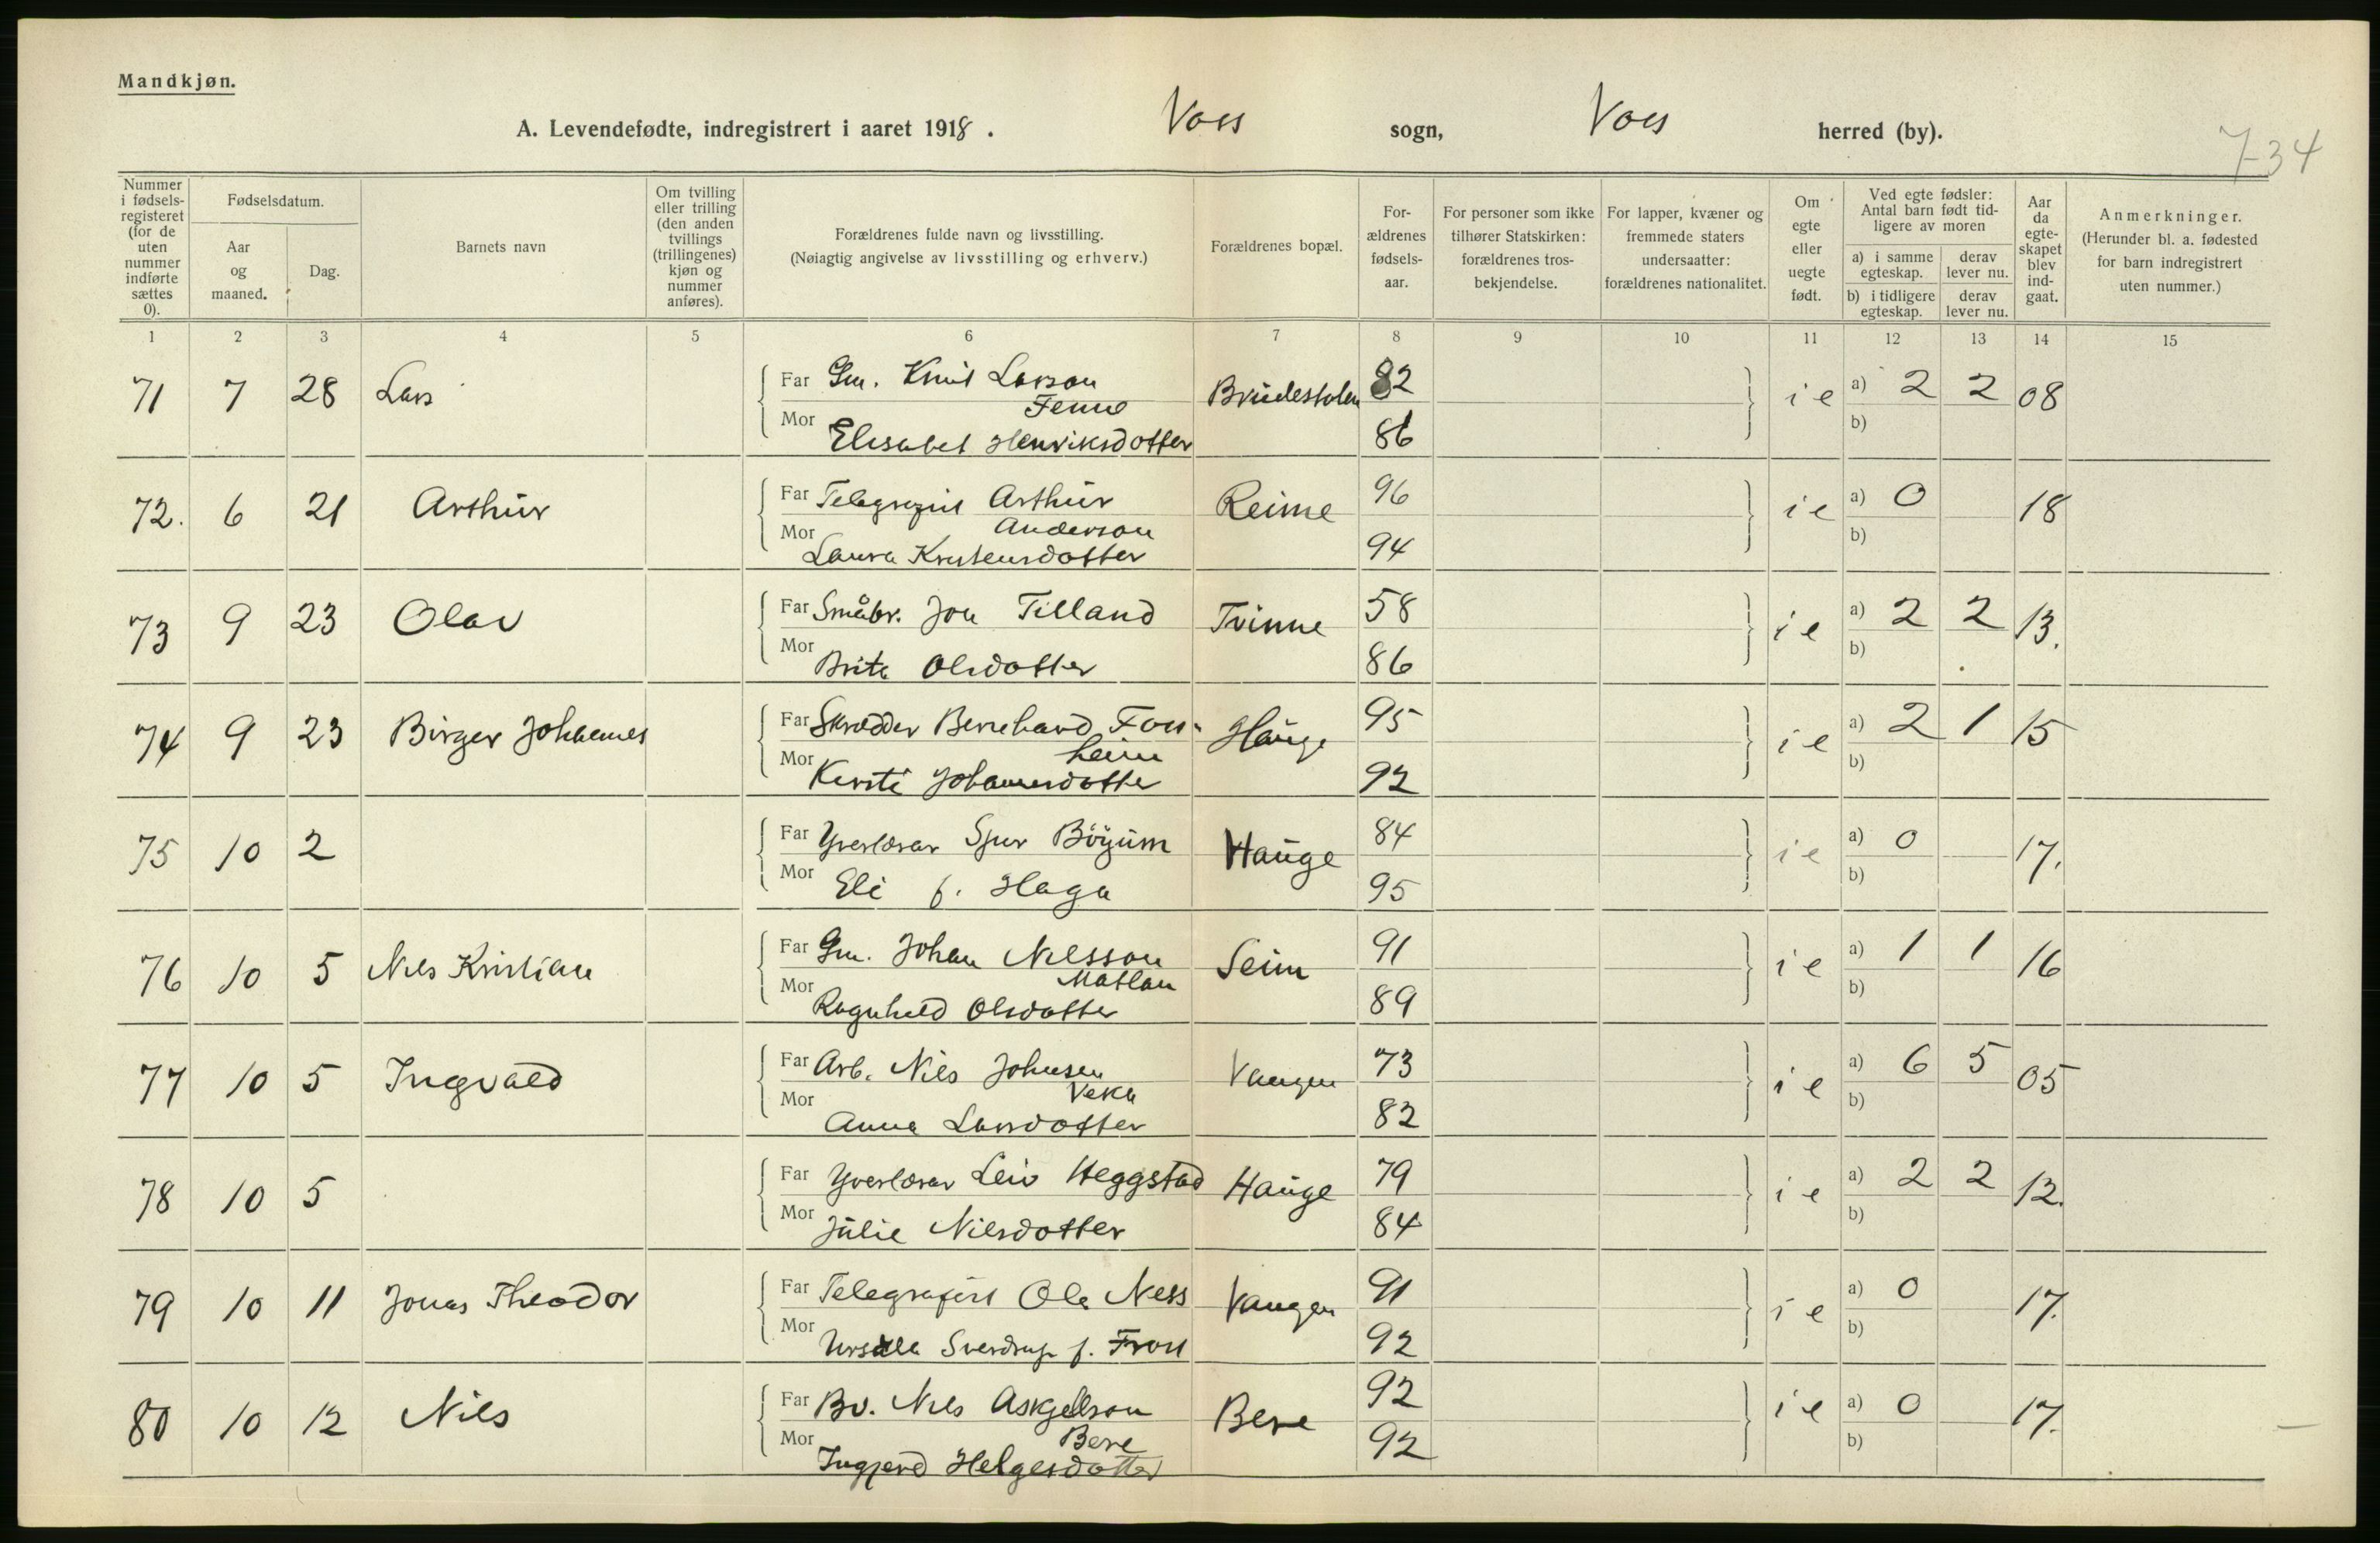 Mandkjøn.
A. Levendefødte, indregistrert i aaret 1918. Voss sogn, Voss herred (by).
7-34
Nummer i fødsels-registeret (for de uten nummer indførte sættes 0).
Fødselsdatum.
Aar og maaned.
Dag.
Barnets navn
Om tvilling eller trilling (den anden tvillings (trillingenes) kjøn og nummer anføres).
Forældrenes fulde navn og livsstilling.
(Nøiagtig angivelse av livsstilling og erhverv.)
Forældrenes bopæl.
For-ældrenes fødsels-aar.
For personer som ikke tilhører Statskirken: forældrenes tros-bekjendelse.
For lapper, kvæner og fremmede staters undersaatter: forældrenes nationalitet.
Om egte eller uegte født.
Ved egte fødsler: Antal barn født tid-ligere av moren
a) i samme egteskap.
derav lever nu.
b) i tidligere egteskap.
derav lever nu.
Aar da egte-skapet blev ind-gaat.
Anmerkninger.
(Herunder bl. a. fødested for barn indregistrert uten nummer.)
1 2 3 4 5 6 7 8 9 10 11 12 13 14 15
71 7 28 Lars Far Gm. Knut Larson Brudestolen 82 i e a) 2 2 08
Femno
Mor Elisabet Henriksdotter 86 b)
72. 6 21 Arthur Far Telegrafist Arthur Reime 96 i e a) 0 18
Anderson
Mor Laura Kristensdotter 94 b)
73 9 23 Olav Far Småbr. Jon Tilland Tvinne 58 i e a) 2 2 13.
Mor Brita Olsdotter 86 b)
74 9 23 Birger Johannes Far Skrædder Bernhard Foss- Hauge 95 i e a) 2 1 15
heim
Mor Kirsti Johannesdotter 92 b)
75 10 2 Far Yverlærar Sjur Böyum Hauge 84 i e a) 0 17.
Mor Eli f. Haga 95 b)
76 10 5 Nils Kristian Far Gm. Johan Nilsson Seim 91 i e a) 1 1 16
Matlau
Mor Ragnhild Olsdotter 89 b)
77 10 5 Ingvald Far Arb. Nils Johnsen Vangen 73 i e a) 6 5 05
Veka
Mor Anna Larsdotter 82 b)
78 10 5 Far Yverlærar Leiv Heggstad Hauge 79 i e a) 2 2 12.
Mor Julie Nilsdotter 84 b)
79 10 11 Jonas Theodor Far Telegrafist Ola Ness Vangen 91 i e a) 0 17.
Mor Ursula Sverdrup f. Fron 92 b)
80 10 12 Nils Far Bv. Nils Askjellson Bere 92 i e a) 0 17.
Bere
Mor Ingjerd Helgesdotter 92 b)